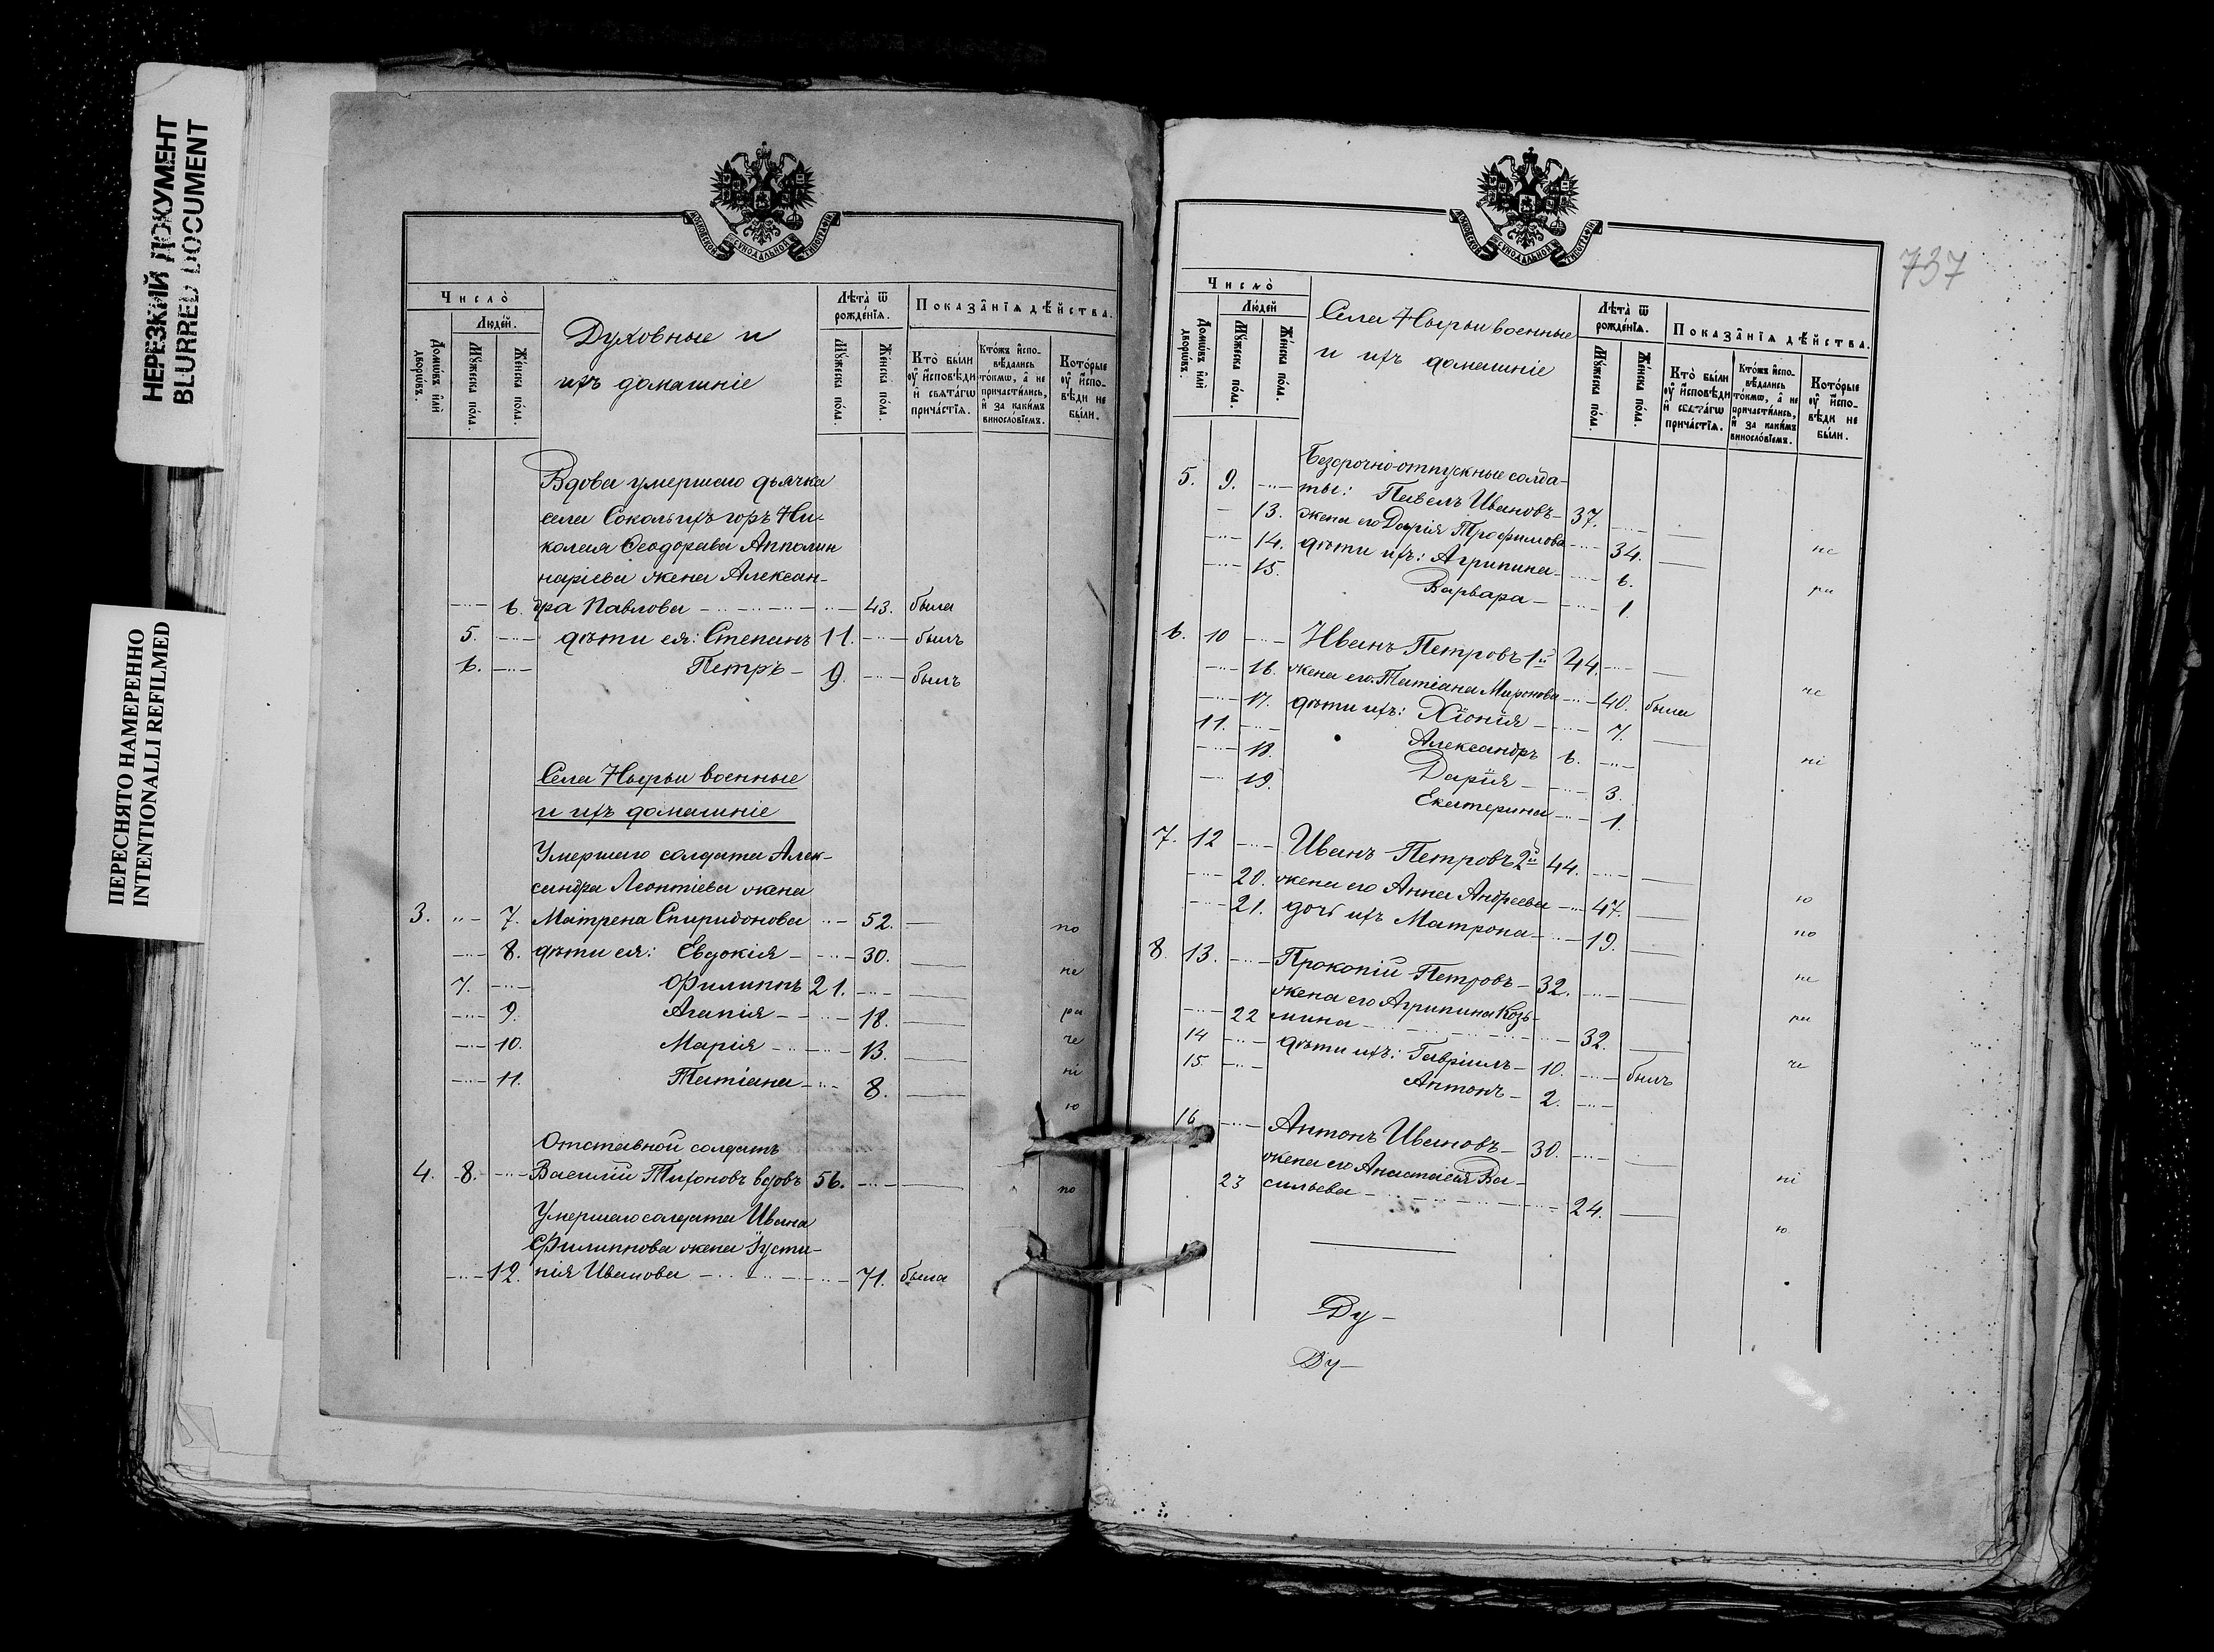 НЕРЕЗКИЙ ДОКУМЕНТ
BLURRED DOCUMENT
ПЕРЕСНЯТО НАМЕРЕННО
INTENTIONALLI REFILMED
МОСКОВСКОЙ СѴНОДАЛЬНОЙ ТИПОГРАФІИ
Число̀
Людей.
Домѡ́въ и҆лѝ дворѡ́въ.
Мꙋ́жеска по́ла.
Же́нска по́ла.
Духовные и
ихъ домашніе
Лѣта̀ ѿ рожде́нїѧ.
Мꙋ́жеска по́ла.
Же́нска по́ла.
Показа̑нїѧ дѣ́йства.
Кто̀ бы́ли ᲂу҆ и҆́сповѣди и҆ свѧта́гѡ прича́стїѧ.
Кто́жъ и҆спо-вѣ́дались то́кмѡ, а҆ не причасти́лись, и҆ за каки́мъ винословїемъ.
Кото́рые ᲂу҆ и҆́спо-вѣди не бы́ли.
Вдова умершаго дьячка
села Сокольихъ горъ Ни-
колая Ѳеодорова Апполин
наріева жена Алексан-
6. дра Павлова 43. была
5. дѣти ея: Степанъ 11. былъ
6. Петръ 9. былъ
Села Нырьи военные
и ихъ домашніе
Умершаго солдата Алек-
сандра Леонтіева жена
3. 7. Матрена Спиридонова 52. по
8. дѣти ея: Евдокія 30. не
7. Филиппъ 21. ра
9. Агапія 18. че
10. Марія 13. ні
11. Татіана 8. ю
Отставной солдатъ
4. 8. Василій Тихоновъ вдовъ 56. по
Умершаго солдата Ивана
Филиппова жена Іусти-
12. нія Иванова 71. была
737
МОСКОВСКОЙ СѴНОДАЛЬНОЙ ТИПОГРАФІИ
Число̀
Людей
Домѡ́въ и҆лѝ дворѡ́въ.
Мꙋ́жеска по́ла.
Же́нска по́ла.
Села Нырьи военные
и ихъ домашніе
Лѣта̀ ѿ рожде́нїѧ.
Мꙋ́жеска по́ла.
Же́нска по́ла.
Показа̑нїѧ дѣ́йства.
Кто̀ бы́ли ᲂу҆ и҆́сповѣди и҆ свѧта́гѡ прича́стїѧ.
Кто́жъ и҆спо-вѣ́дались то́кмѡ, а҆ не причасти́лись, и҆ за каки́мъ винословїемъ.
Кото́рые ᲂу҆ и҆́спо-вѣди не бы́ли.
Безсрочно-отпускные солда-
5. 9. ты: Павелъ Ивановъ 37.
13. жена его Дарія Трофимова 34. не
14. дѣти ихъ: Агрипина 6. ра
15. Варвара 1.
6. 10 Иванъ Петровъ 1й 44.
16. жена его Татіана Миронова 40. была че
17. дѣти ихъ: Хіонія 7.
11. Александръ 6. ні
18. Дарія 3.
19. Екатерина 1.
7. 12 Иванъ Петровъ 2й 44.
20. жена его Анна Андреева 47. ю
21. дочь ихъ Матрона 19. по
8. 13. Прокопій Петровъ 32. не
жена его Агрипина Козь-
22 мина 32. ра
14 дѣти ихъ: Гавріилъ 10. былъ че
15. Антонъ 2.
16 Антонъ Ивановъ 30.
жена его Анастасія Ва- ні
23 сильева 24. ю
Ду-
Ду-